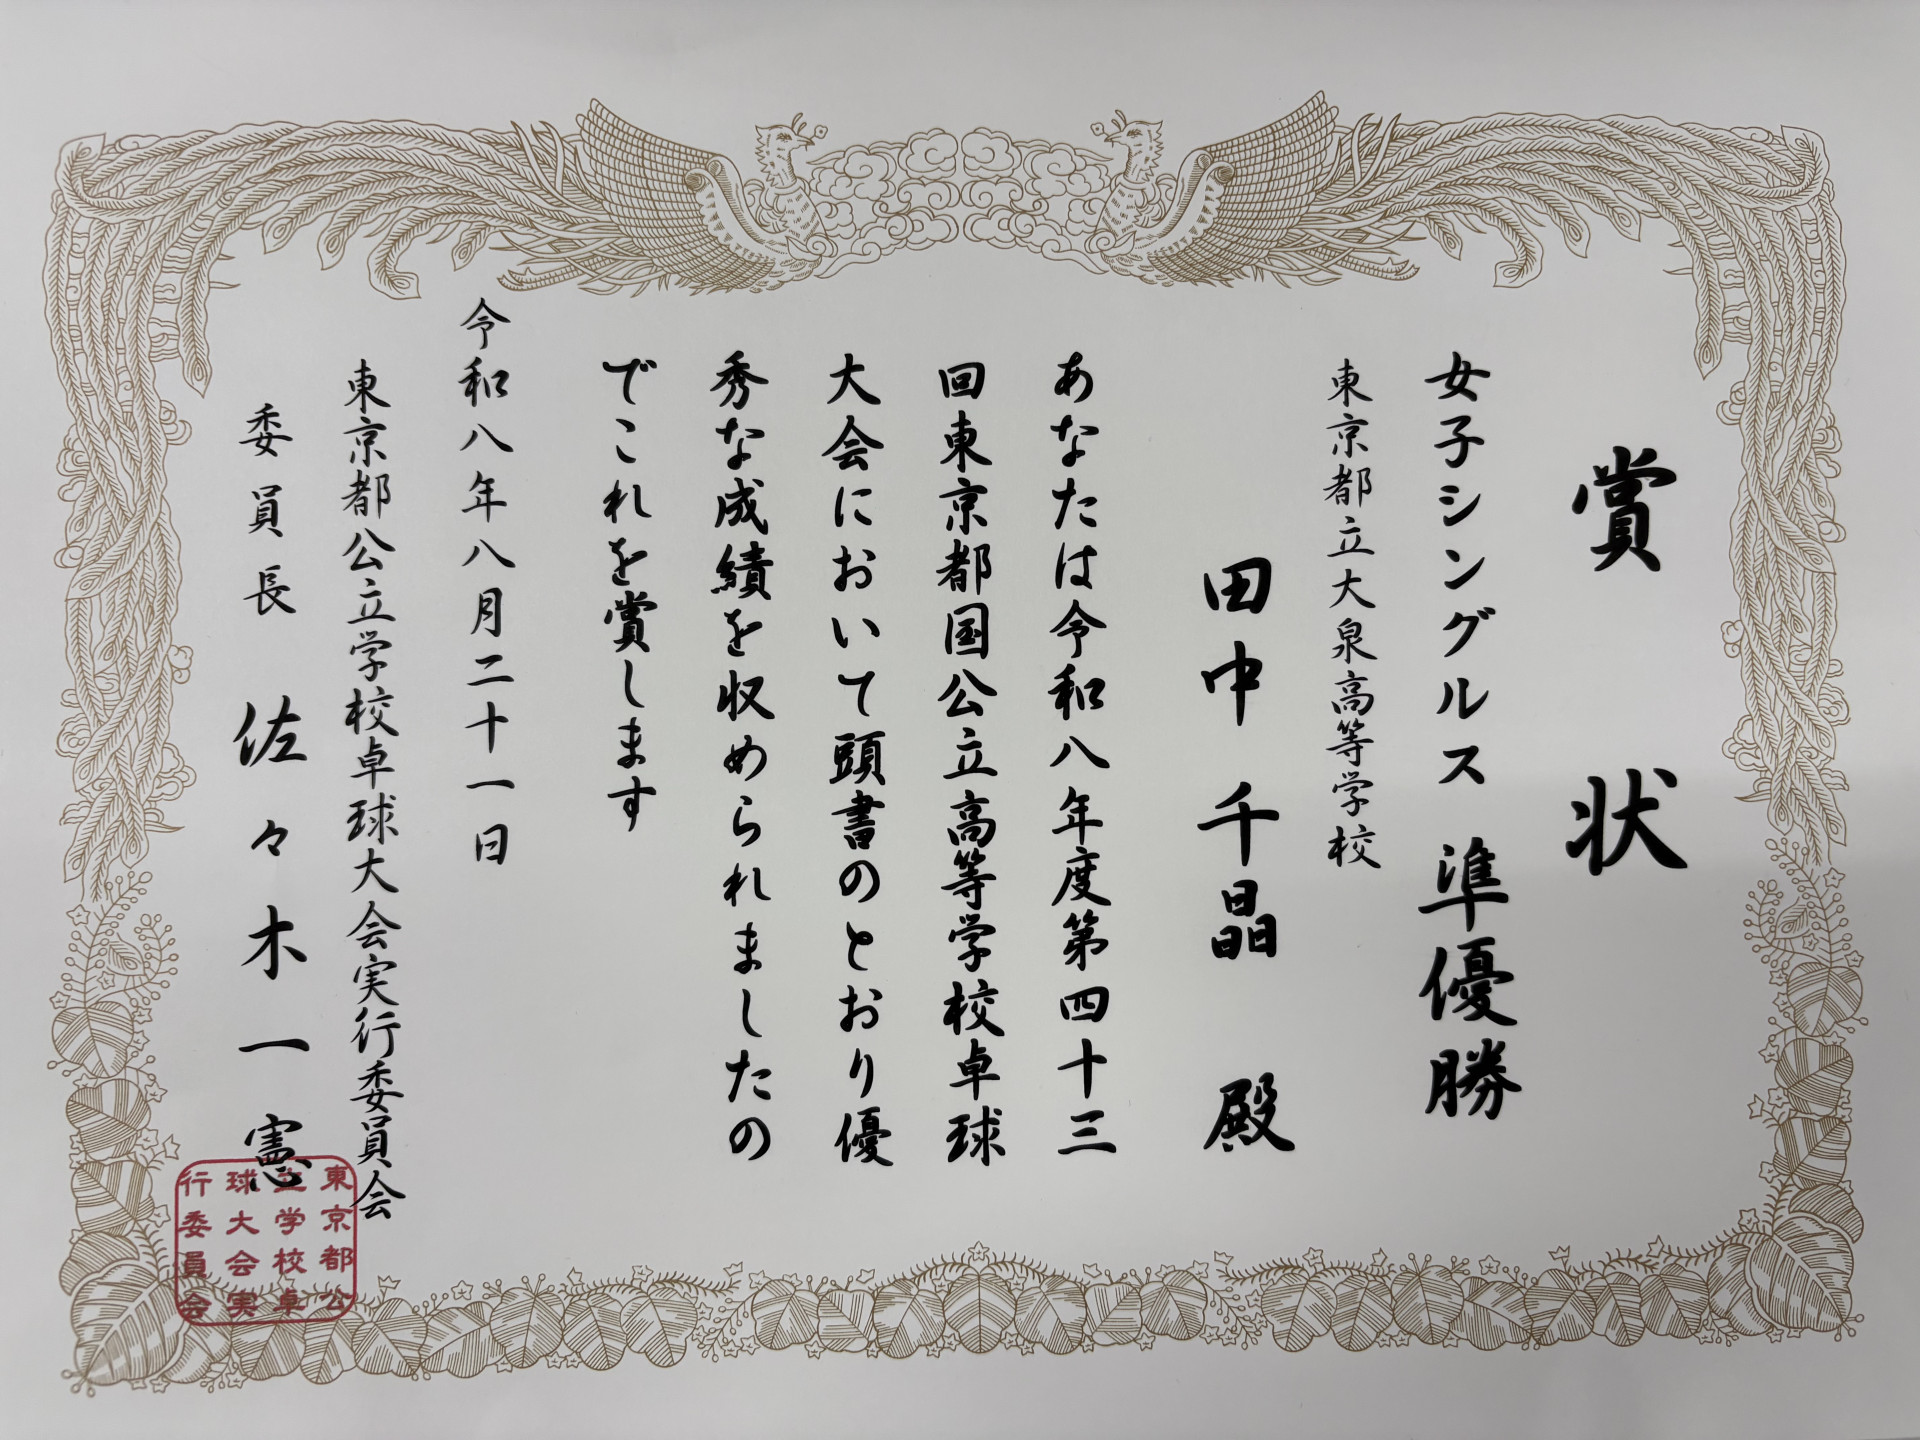 賞状
女子シングルス 準優勝
東京都立大泉高等学校
田中 千晶 殿
あなたは令和八年度第四十三
回東京都国公立高等学校卓球
大会において頭書のとおり優
秀な成績を収められましたの
でこれを賞します
令和八年八月二十一日
東京都公立学校卓球大会実行委員会
委員長 佐々木一憲
東京都公
立学校卓
球大会実
行委員会